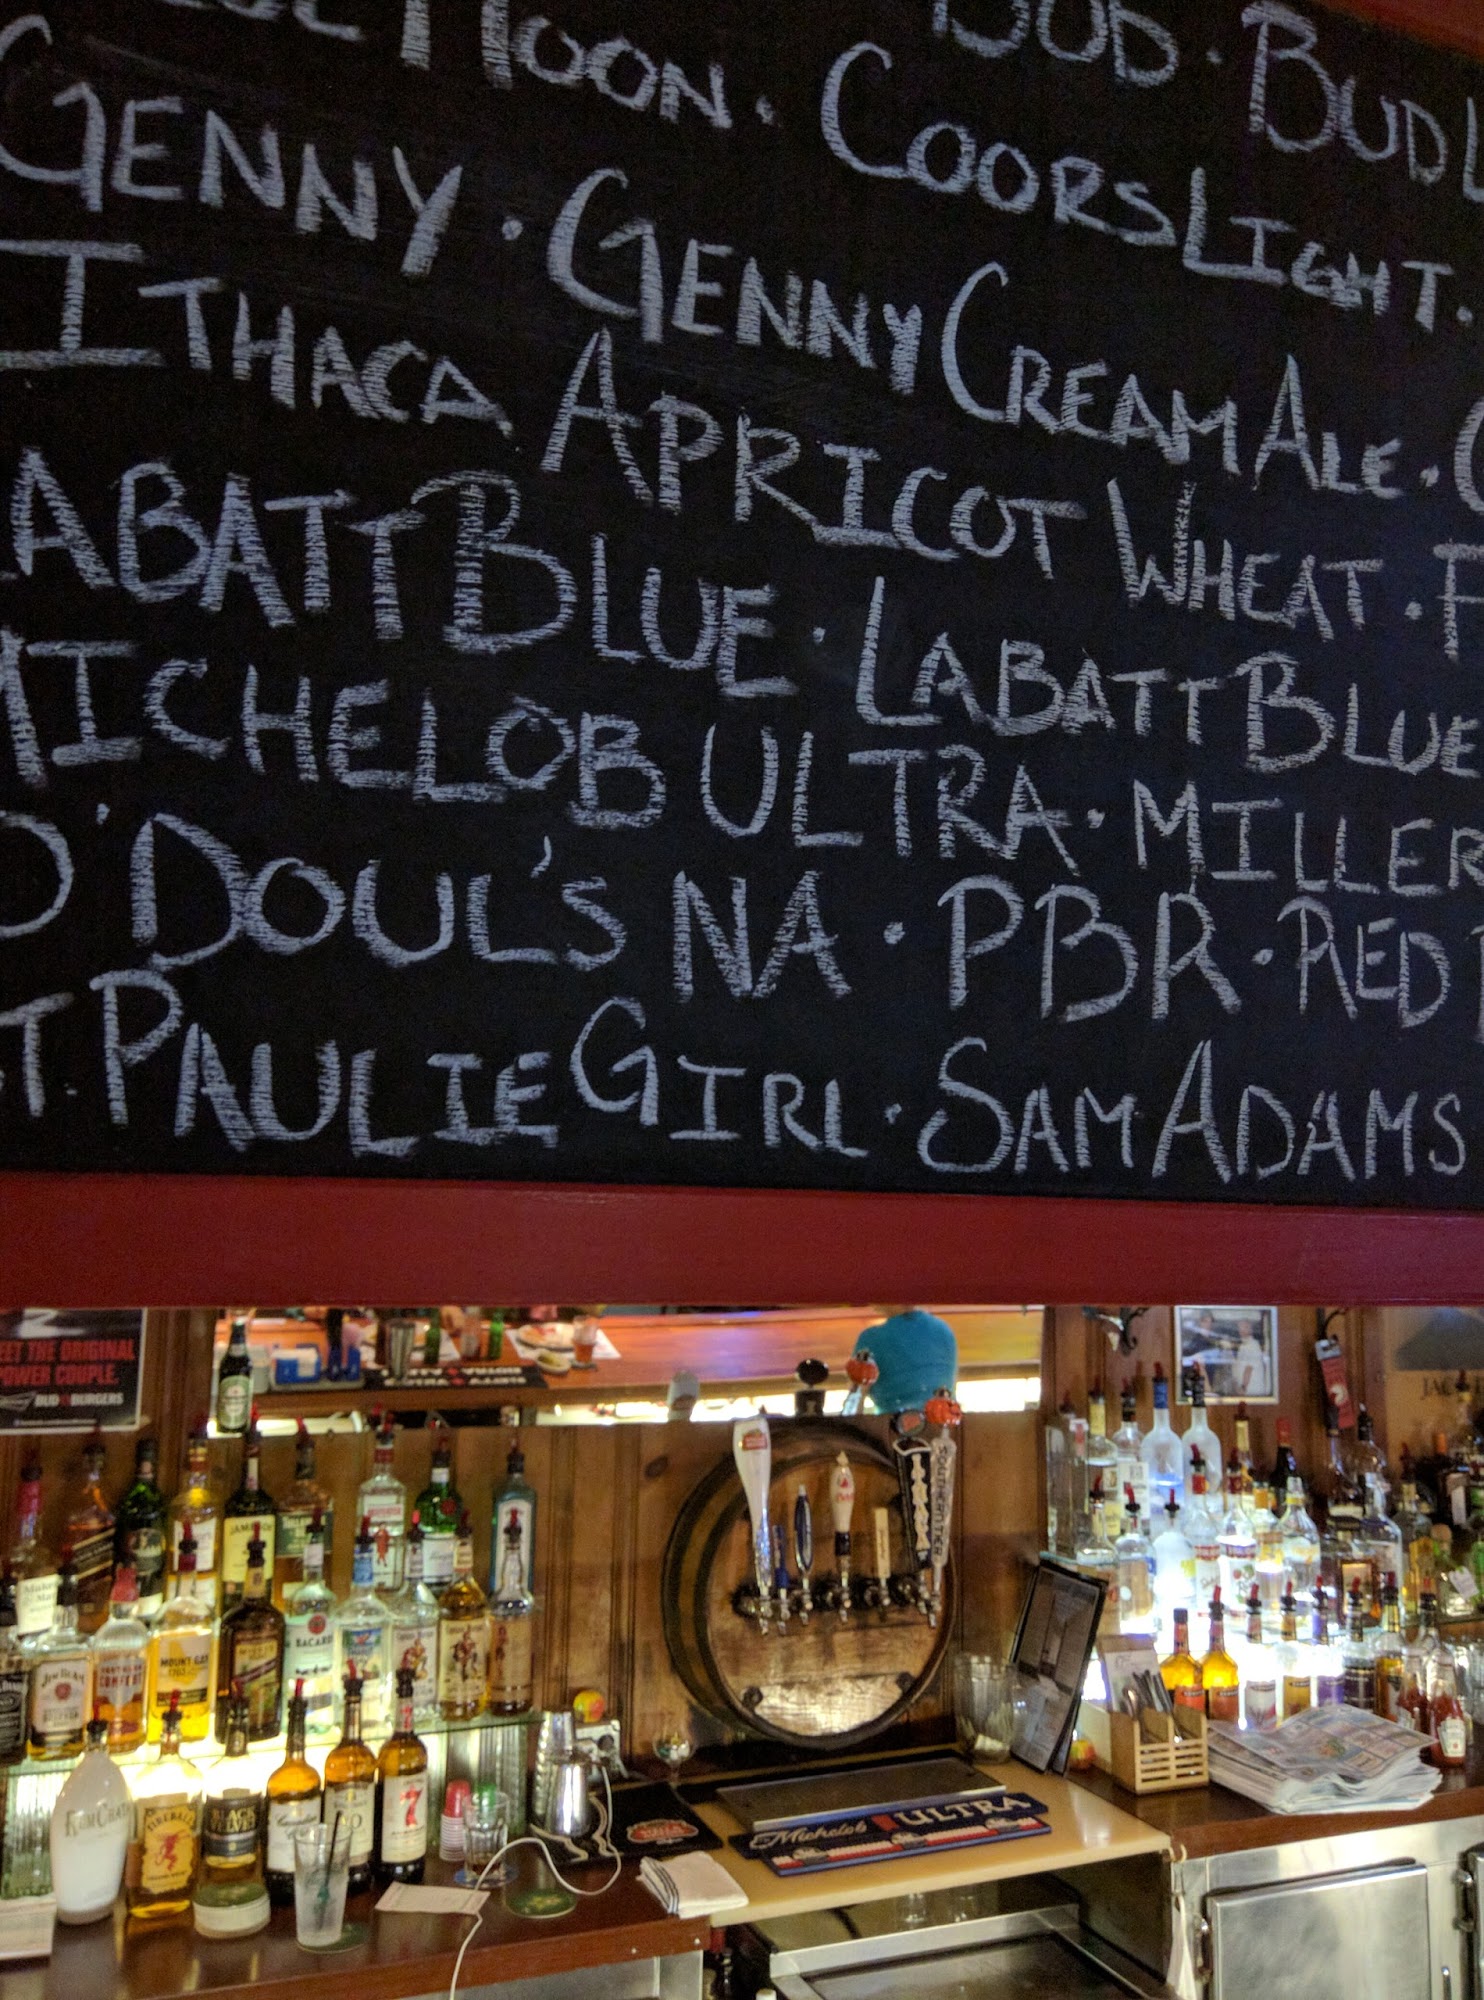 MOON · BUD · BUD L
COORS LIGHT.
GENNY · GENNY CREAM ALE ·
ITHACA APRICOT WHEAT ·
LABATT BLUE · LABATT BLUE
MICHELOB ULTRA · MILLER
O'DOUL'S NA · PBR · RED
ST. PAULIE GIRL · SAM ADAMS
MEET THE ORIGINAL
POWER COUPLE.
BUD & BURGERS
JAC
SOUTHERN TIER
JAMESON
BACARDI
MOUNT GAY
1703
JIM BEAM
SOUTHERN
COMFORT
RUMCHATA
FIREBALL
BLACK
VELVET
7
Michelob ULTRA